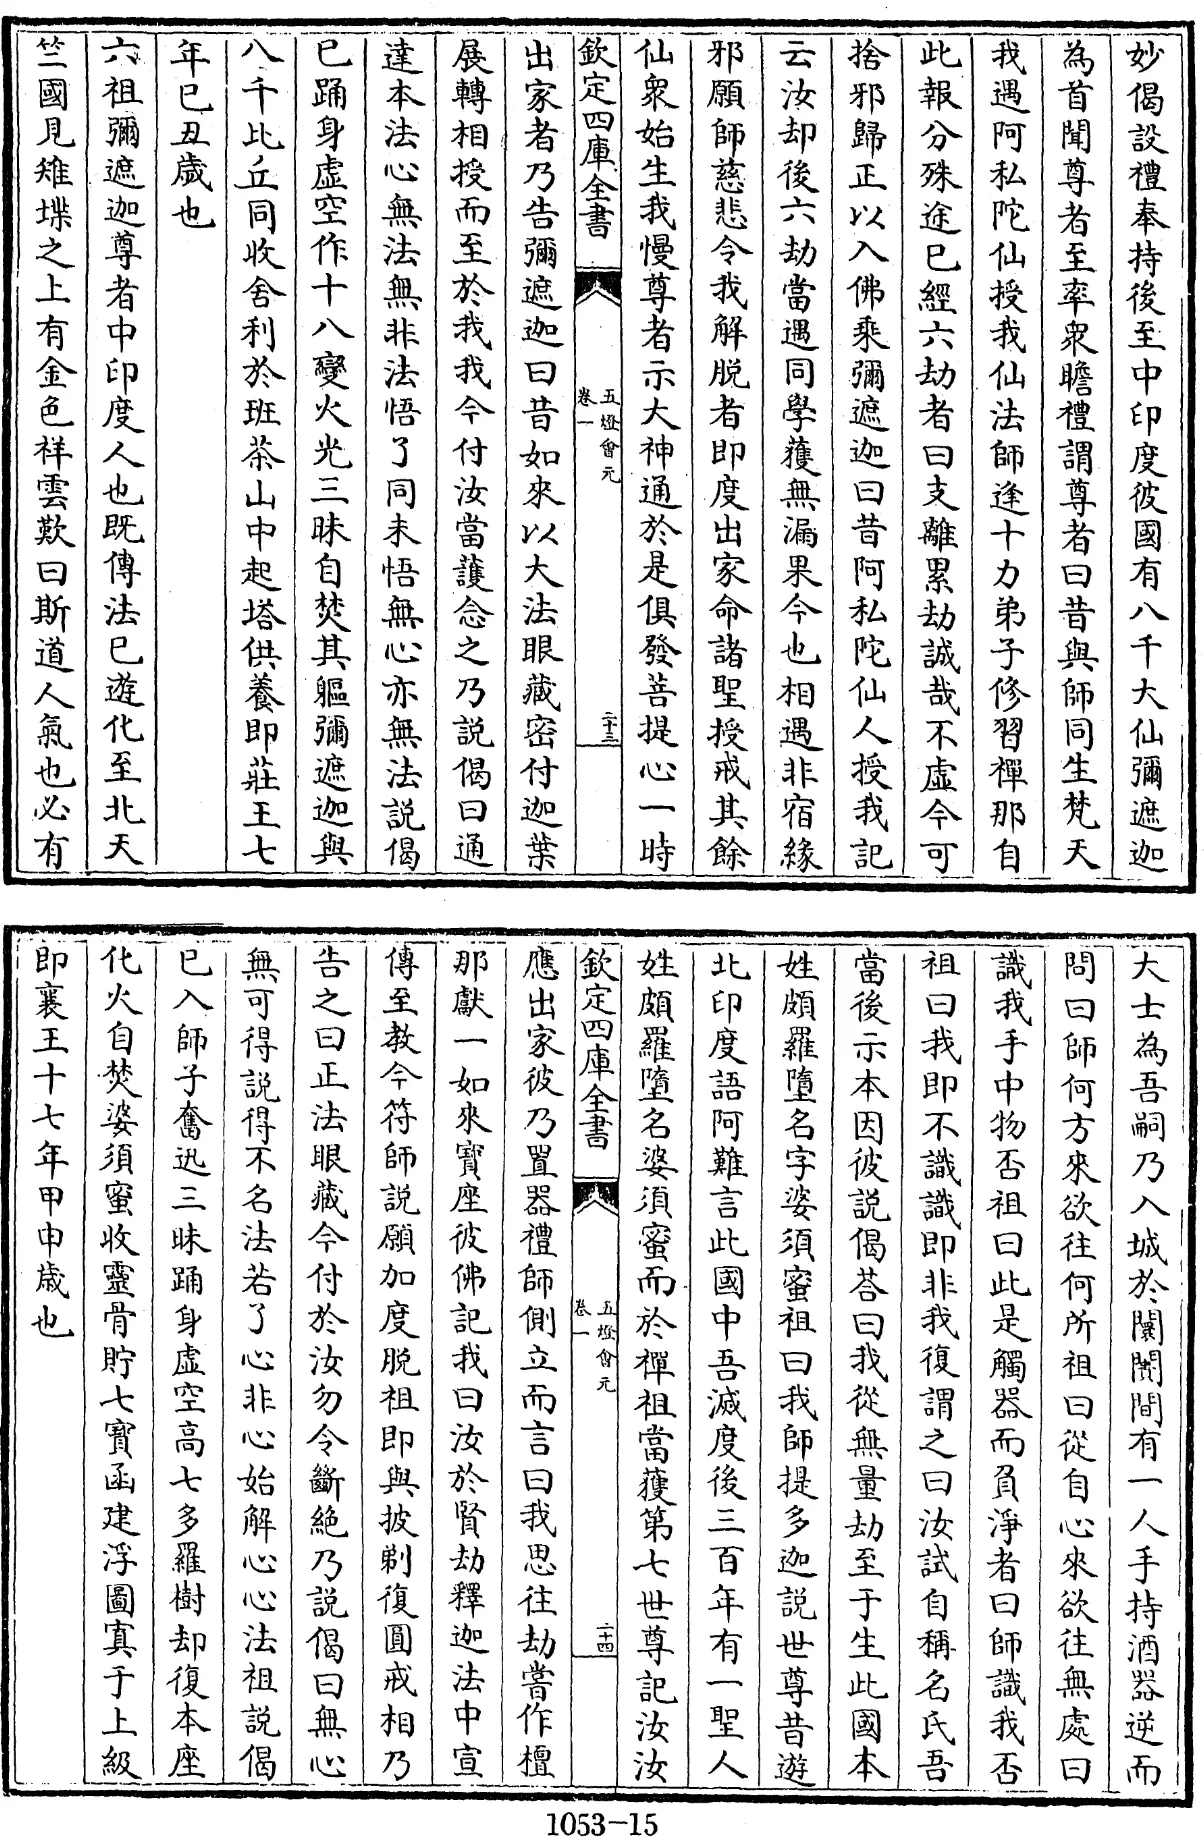 妙偈設禮奉持後至中印度彼國有八千大仙彌遮迦
為首聞尊者至率衆瞻禮謂尊者曰昔與師同生梵天
我遇阿私陀仙授我仙法師逢十力弟子修習禪那自
此報分殊途已經六劫者曰支離累劫誠哉不虛今可
捨邪歸正以入佛乗彌遮迦曰昔阿私陀仙人授我記
云汝却後六劫當遇同學獲無漏果今也相遇非宿緣
邪願師慈悲令我解脱者即度出家命諸聖授戒其餘
仙衆始生我慢尊者示大神通於是俱發菩提心一時
欽定四庫全書
五燈會元
卷一
二十三
出家者乃告彌遮迦曰昔如來以大法眼藏密付迦葉
展轉相授而至於我我今付汝當護念之乃説偈曰通
達本法心無法無非法悟了同未悟無心亦無法説偈
已踊身虛空作十八變火光三昧自焚其軀彌遮迦與
八千比丘同收舍利於班茶山中起塔供養即莊王七
年已丑歲也
六祖彌遮迦尊者中印度人也既傳法已遊化至北天
竺國見雉堞之上有金色祥雲歎曰斯道人氣也必有
大士為吾嗣乃入城於闤闠間有一人手持酒器逆而
問曰師何方來欲往何所祖曰從自心來欲往無處曰
識我手中物否祖曰此是觸器而負淨者曰師識我否
祖曰我即不識識即非我復謂之曰汝試自稱名氏吾
當後示本因彼説偈荅曰我從無量劫至于生此國本
姓頗羅墮名字婆須蜜祖曰我師提多迦説世尊昔遊
北印度語阿難言此國中吾滅度後三百年有一聖人
姓頗羅墮名婆須蜜而於禪祖當獲第七世尊記汝汝
欽定四庫全書
五燈會元
卷一
二十四
應出家彼乃置器禮師側立而言曰我思往劫嘗作檀
那獻一如來寶座彼佛記我曰汝於賢劫釋迦法中宣
傳至教今符師説願加度脱祖即與披剃復圓戒相乃
告之曰正法眼藏今付於汝勿令斷絶乃説偈曰無心
無可得説得不名法若了心非心始解心心法祖説偈
已入師子奮迅三昧踊身虛空高七多羅樹却復本座
化火自焚婆須蜜收靈骨貯七寶函建浮圖寘于上級
即襄王十七年甲申歲也
1053-15